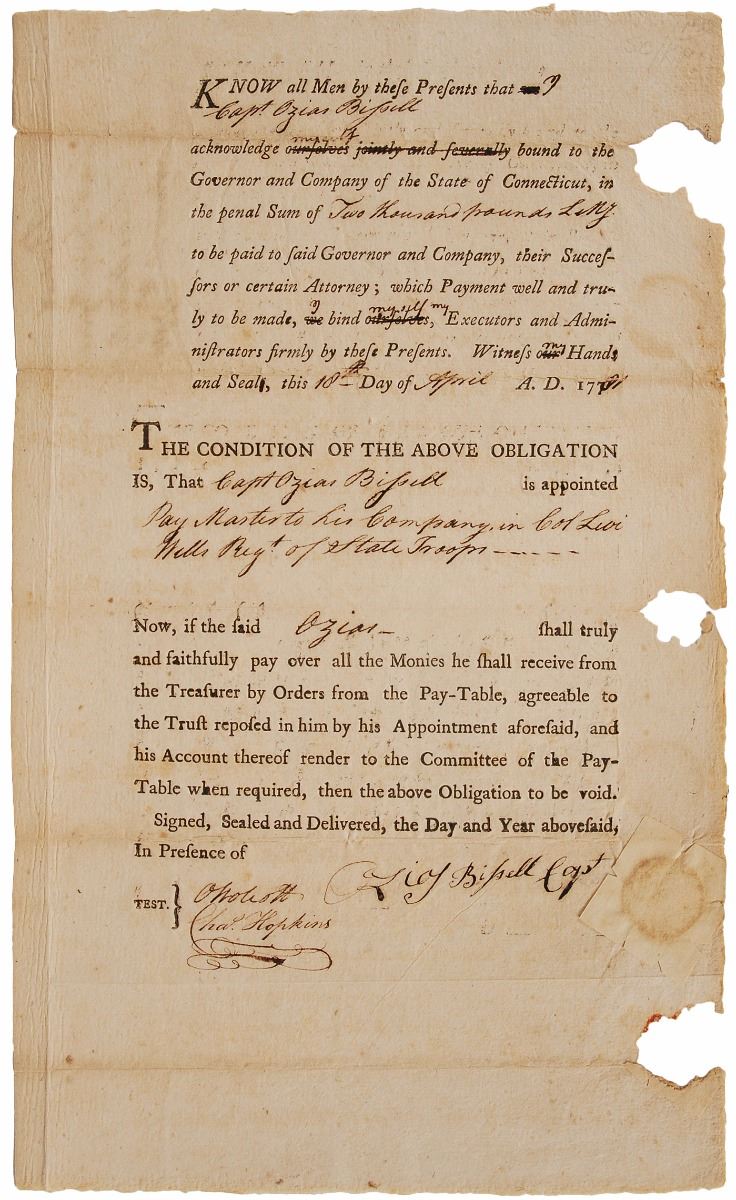 KNOW all Men by theſe Preſents that we I
Capt. Ozias Biſsell
acknowledge ourſelves myself jointly and ſeverally bound to the
Governor and Company of the State of Connecticut, in
the penal Sum of Two thousand pounds L My
to be paid to ſaid Governor and Company, their Succeſ-
ſors or certain Attorney; which Payment well and tru-
ly to be made, we I bind ourſelves, myself my Executors and Admi-
niſtrators firmly by theſe Preſents. Witneſs our my Hands
and Seals, this 18th Day of April A. D. 1781
THE CONDITION OF THE ABOVE OBLIGATION
IS, That Capt Ozias Biſsell is appointed
Pay Master to his Company, in Col Levi
Wells Regt of State Troops
Now, if the ſaid Ozias ſhall truly
and faithfully pay over all the Monies he ſhall receive from
the Treaſurer by Orders from the Pay-Table, agreeable to
the Truſt repoſed in him by his Appointment aforeſaid, and
his Account thereof render to the Committee of the Pay-
Table when required, then the above Obligation to be void.
Signed, Sealed and Delivered, the Day and Year aboveſaid,
In Preſence of
Ozias Biſsell Capt
TEST. } O Wolcott
Chas. Hopkins